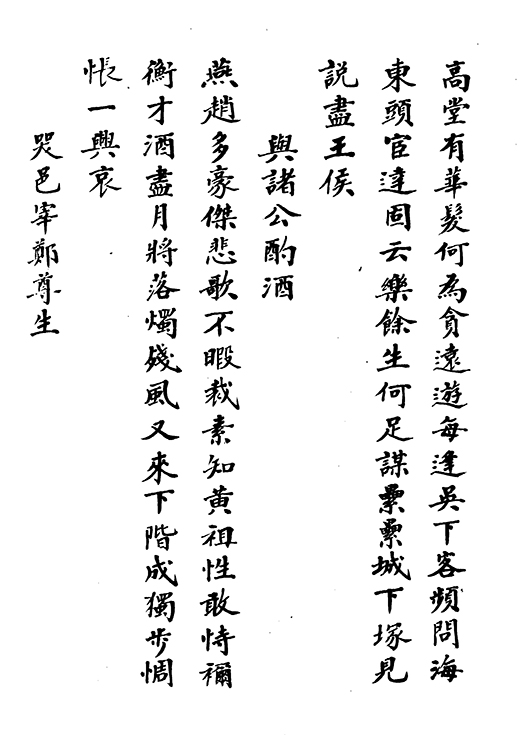 高堂有華髮何為貪遠遊每逢吳下客頻問海
東頭宦達固云樂餘生何足謀纍纍城下塚見
說盡王侯
與諸公酌酒
燕趙多豪傑悲歌不暇裁素知黃祖性敢恃禰
衡才酒盡月將落燭殘風又來下階成獨步惆
悵一興哀
哭邑宰鄭尊生